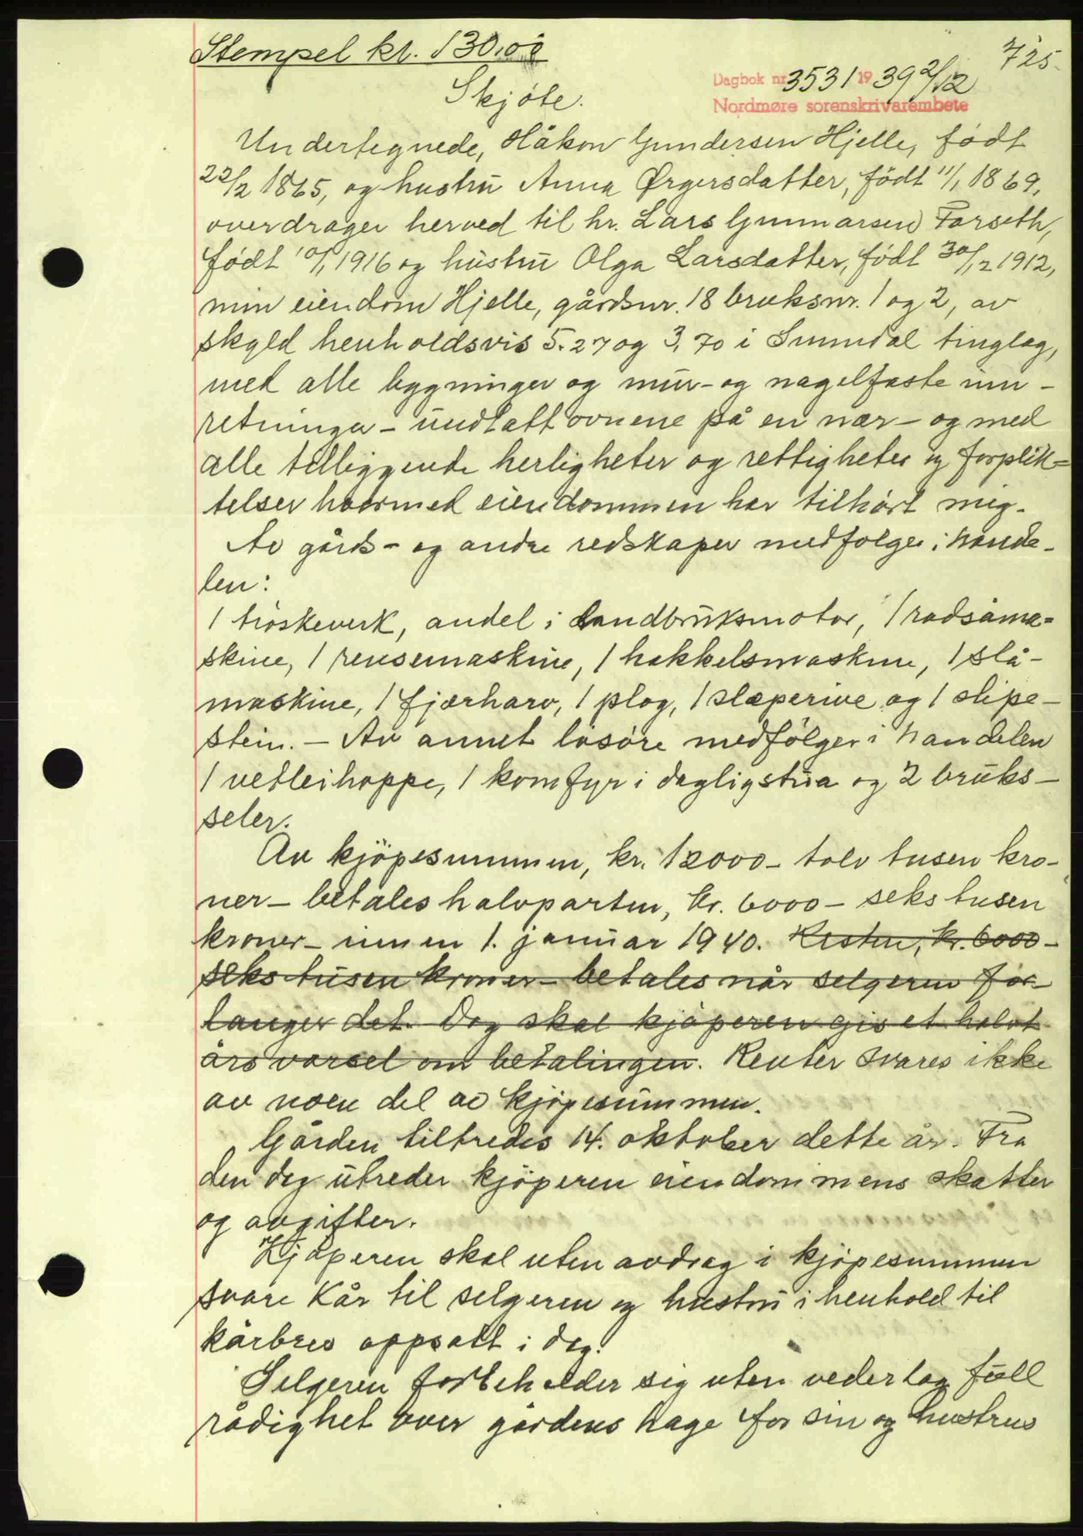 Stempel kr. 130.00
725.
Dagbok nr 3531 1939 2/12
Nordmøre sorenskrivarembete
Skjöte.
Undertegnede, Håkon Gundersen Hjelle, født
22/2 1865, og hustru Anna Ørgersdatter, født 11/1 1869,
overdrager herved til hr. Lars Gunnarsen Forseth,
født 10/1 1916 og hustru Olga Larsdatter, født 30/12 1912,
min eiendom Hjelle, gårdsnr. 18 bruksnr. 1 og 2, av
skyld henholdsvis 5.27 og 3.70 i Sunndal tinglag,
med alle bygninger og mur- og nagelfaste inn-
retninger - undtatt ovnene på en nær - og med
alle tilliggende herligheter og rettigheter og forplik=
telser hvormed eiendommen har tilhört mig.
Av gårds- og andre redskaper medfölger i hande-
len:
1 tröskeverk, andel i landbruksmotor, 1 radsåma=
skine, 1 rensemaskine, 1 hakkelsmaskine, 1 slå-
maskine, 1 fjærharv, 1 plog, 1 slæperive og 1 slipe-
stein. - Av annet lösöre medfölger i handelen
1 vetleihoppe, 1 komfyr i dagligstua og 2 bruks-
seler.
Av kjöpesummen, kr. 12000 - tolv tusen kro-
ner - betales halvparten, kr. 6000 - seks tusen
kroner - innen 1. januar 1940. Resten, kr. 6000 -
seks tusen kroner - betales når selgeren for-
langer det. Dog skal kjöperen gis et halvt
års varsel om betalingen. Renter svares ikke
av noen del av kjöpesummen.
Gården tiltredes 14. oktober dette år. Fra
den dag utreder kjöperen eiendommens skatter
og avgifter.
Kjöperen skal uten avdrag i kjöpesummen
svare kår til selgeren og hustru i henhold til
kårbrev oppsatt i dag.
Selgeren forbeholder sig uten vederlag full
rådighet over gårdens hage for sin og hustrus